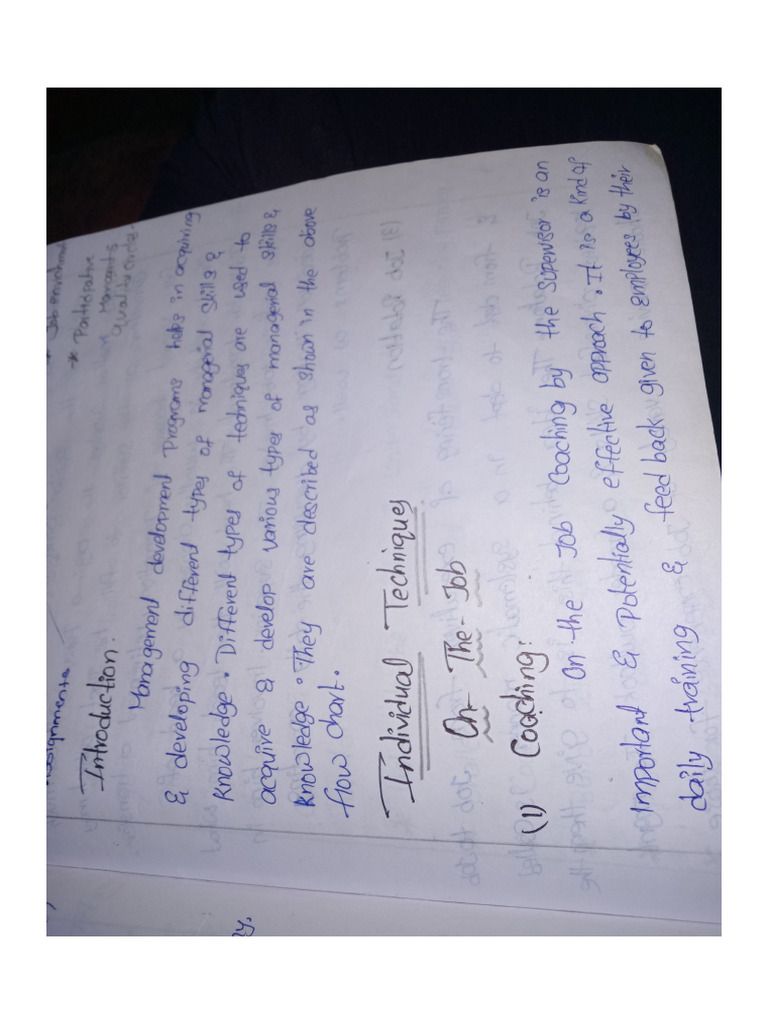 * Job enrichment
* Participative
Managent &
Quality circle
assignments
Introduction:
Management development programs helps in acquiring
& developing different types of managerial skills &
knowledge. Different types of techniques are used to
acquire & develop various types of managerial skills &
knowledge. They are described as shown in the above
flow chart.
Individual Techniques
On-The-Job
(1) Coaching:
On the Job Coaching by the Supervisor is an
Important & Potentially effective approach. It is a kind of
daily training & feed back given to employees by their